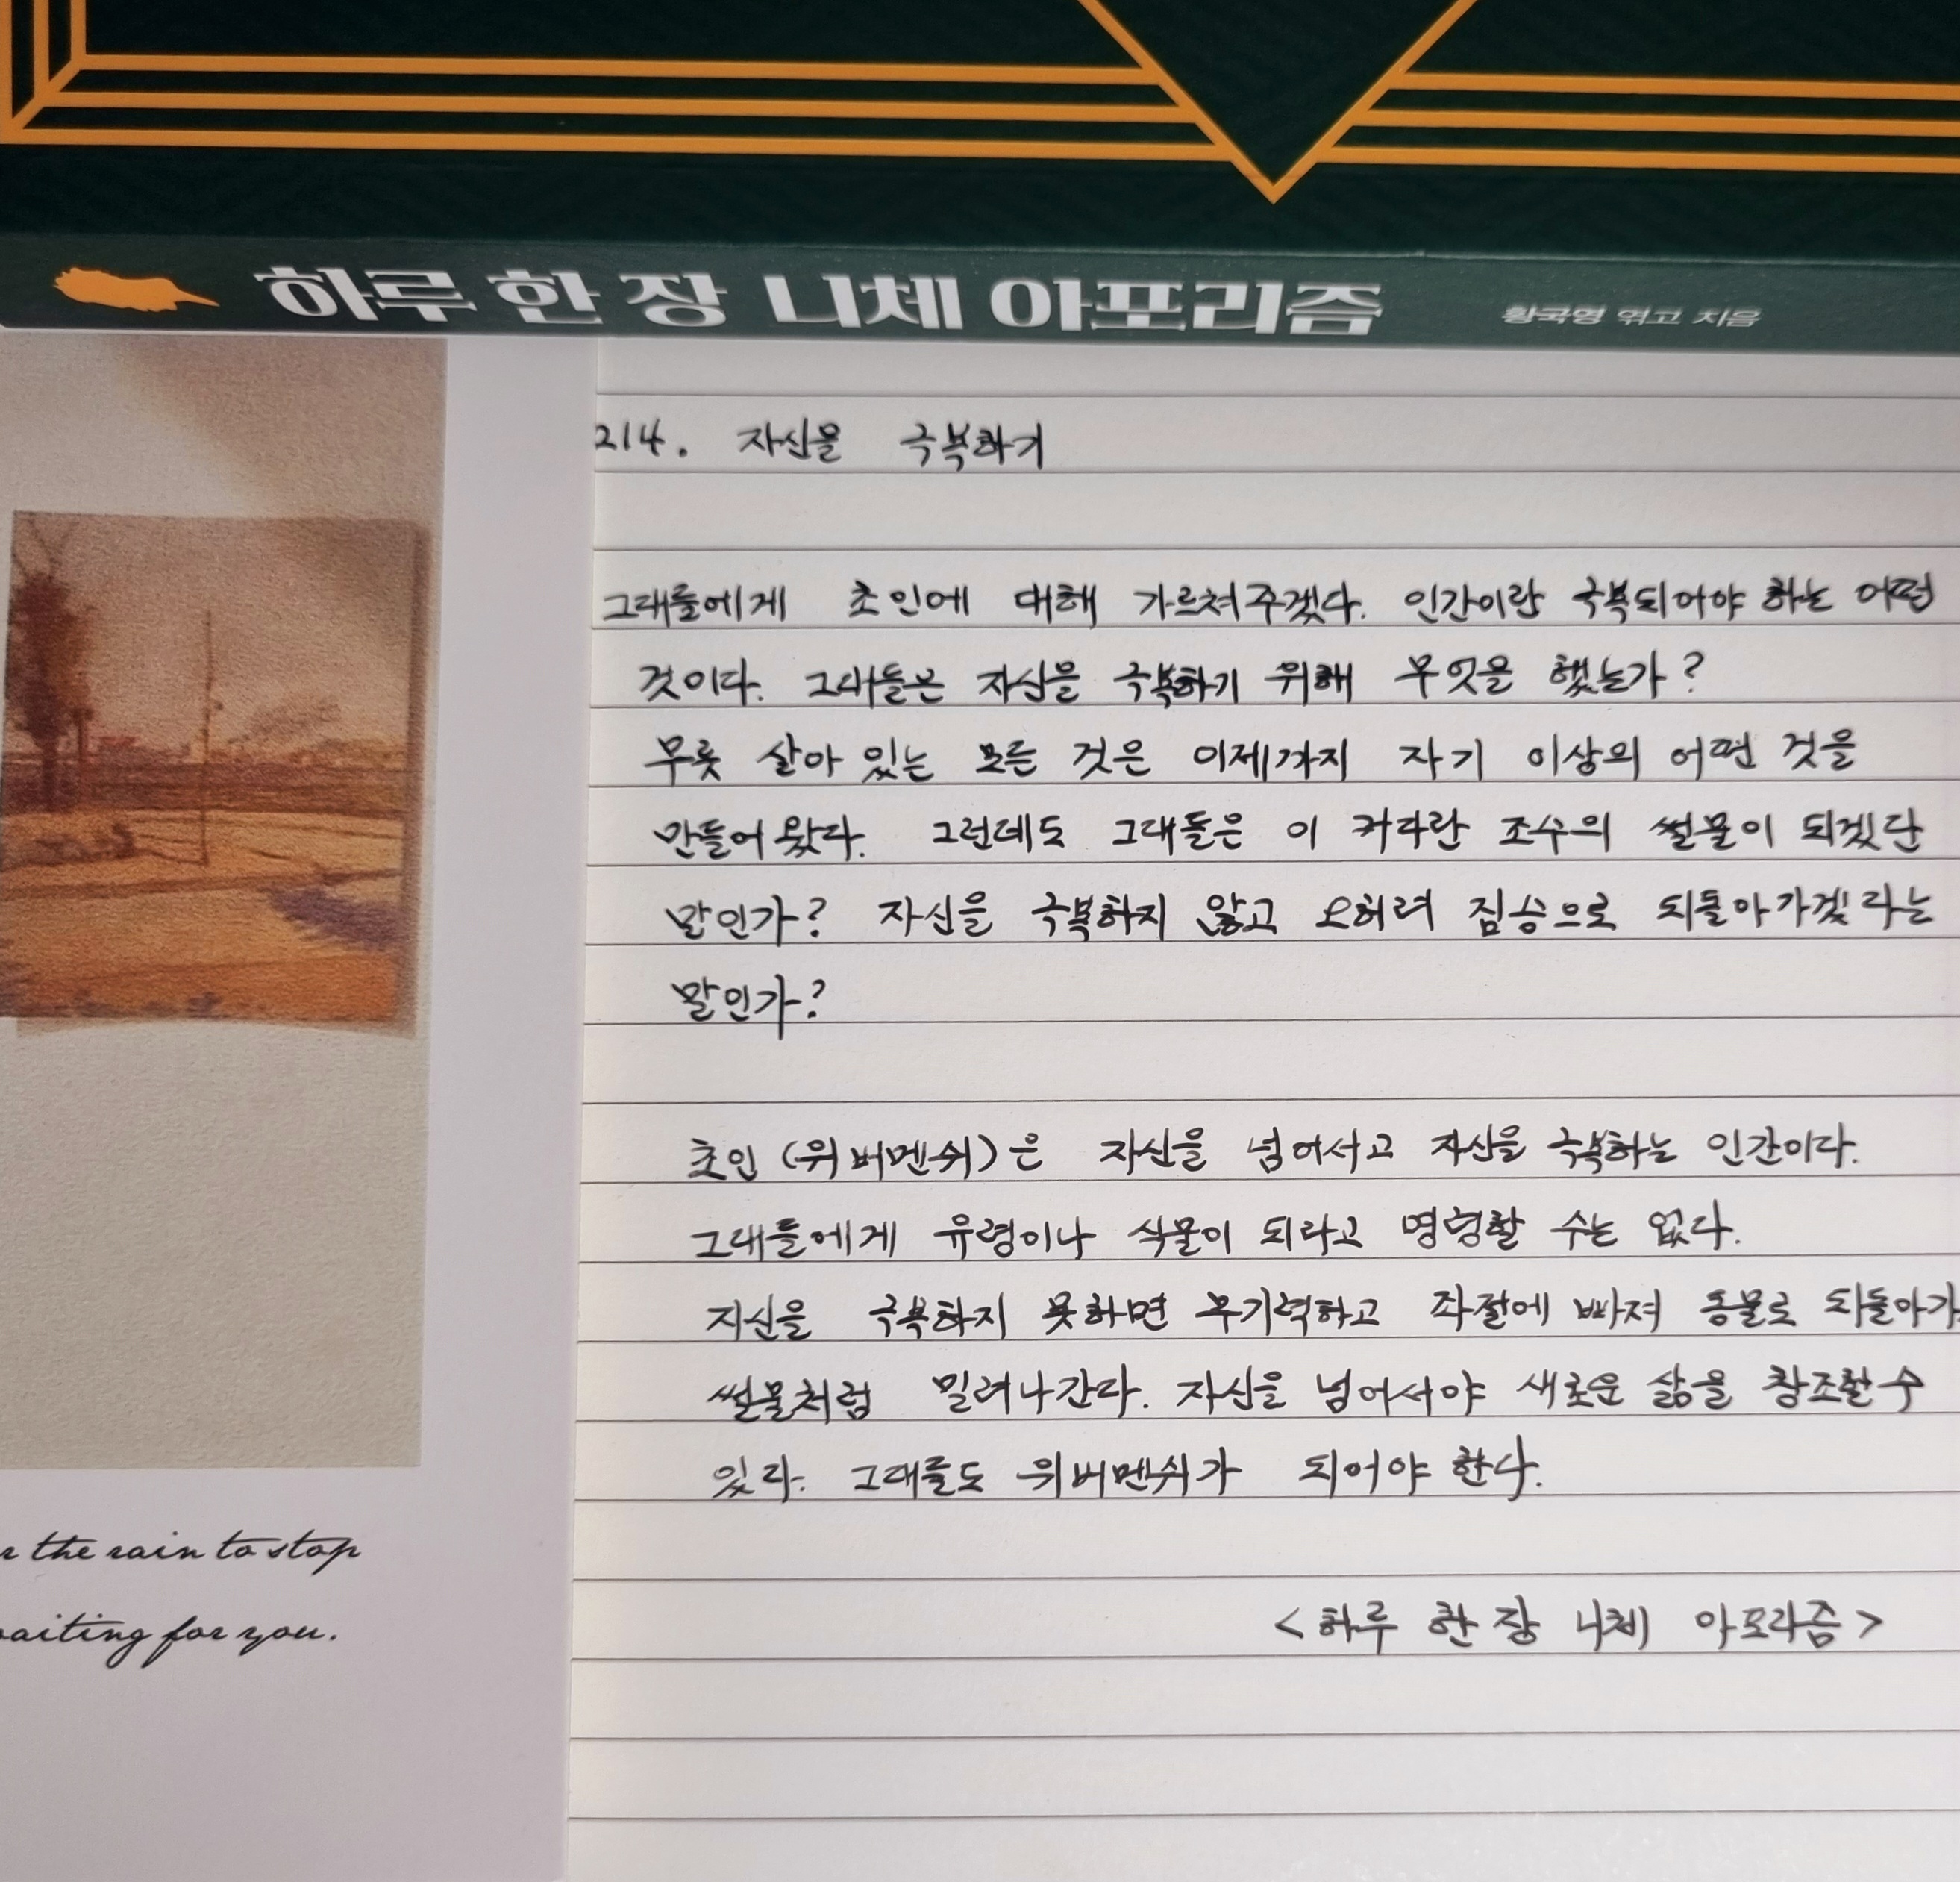 하루 한 장 니체 아포리즘 황국영 엮고 지음
214. 자신을 극복하기
그대들에게 초인에 대해 가르쳐주겠다. 인간이란 극복되어야 하는 어떤
것이다. 그대들은 자신을 극복하기 위해 무엇을 했는가?
무릇 살아 있는 모든 것은 이제까지 자기 이상의 어떤 것을
만들어 왔다. 그런데도 그대들은 이 커다란 조수의 썰물이 되겠단
말인가? 자신을 극복하지 않고 오히려 짐승으로 되돌아가겠다는
말인가?
초인 (위버멘쉬)은 자신을 넘어서고 자신을 극복하는 인간이다.
그대들에게 유령이나 식물이 되라고 명령할 수는 없다.
자신을 극복하지 못하면 무기력하고 좌절에 빠져 동물로 되돌아가
썰물처럼 밀려나간다. 자신을 넘어서야 새로운 삶을 창조할 수
있다. 그대들도 위버멘쉬가 되어야 한다.
<하루 한 장 니체 아포리즘>
the rain to stop
waiting for you.